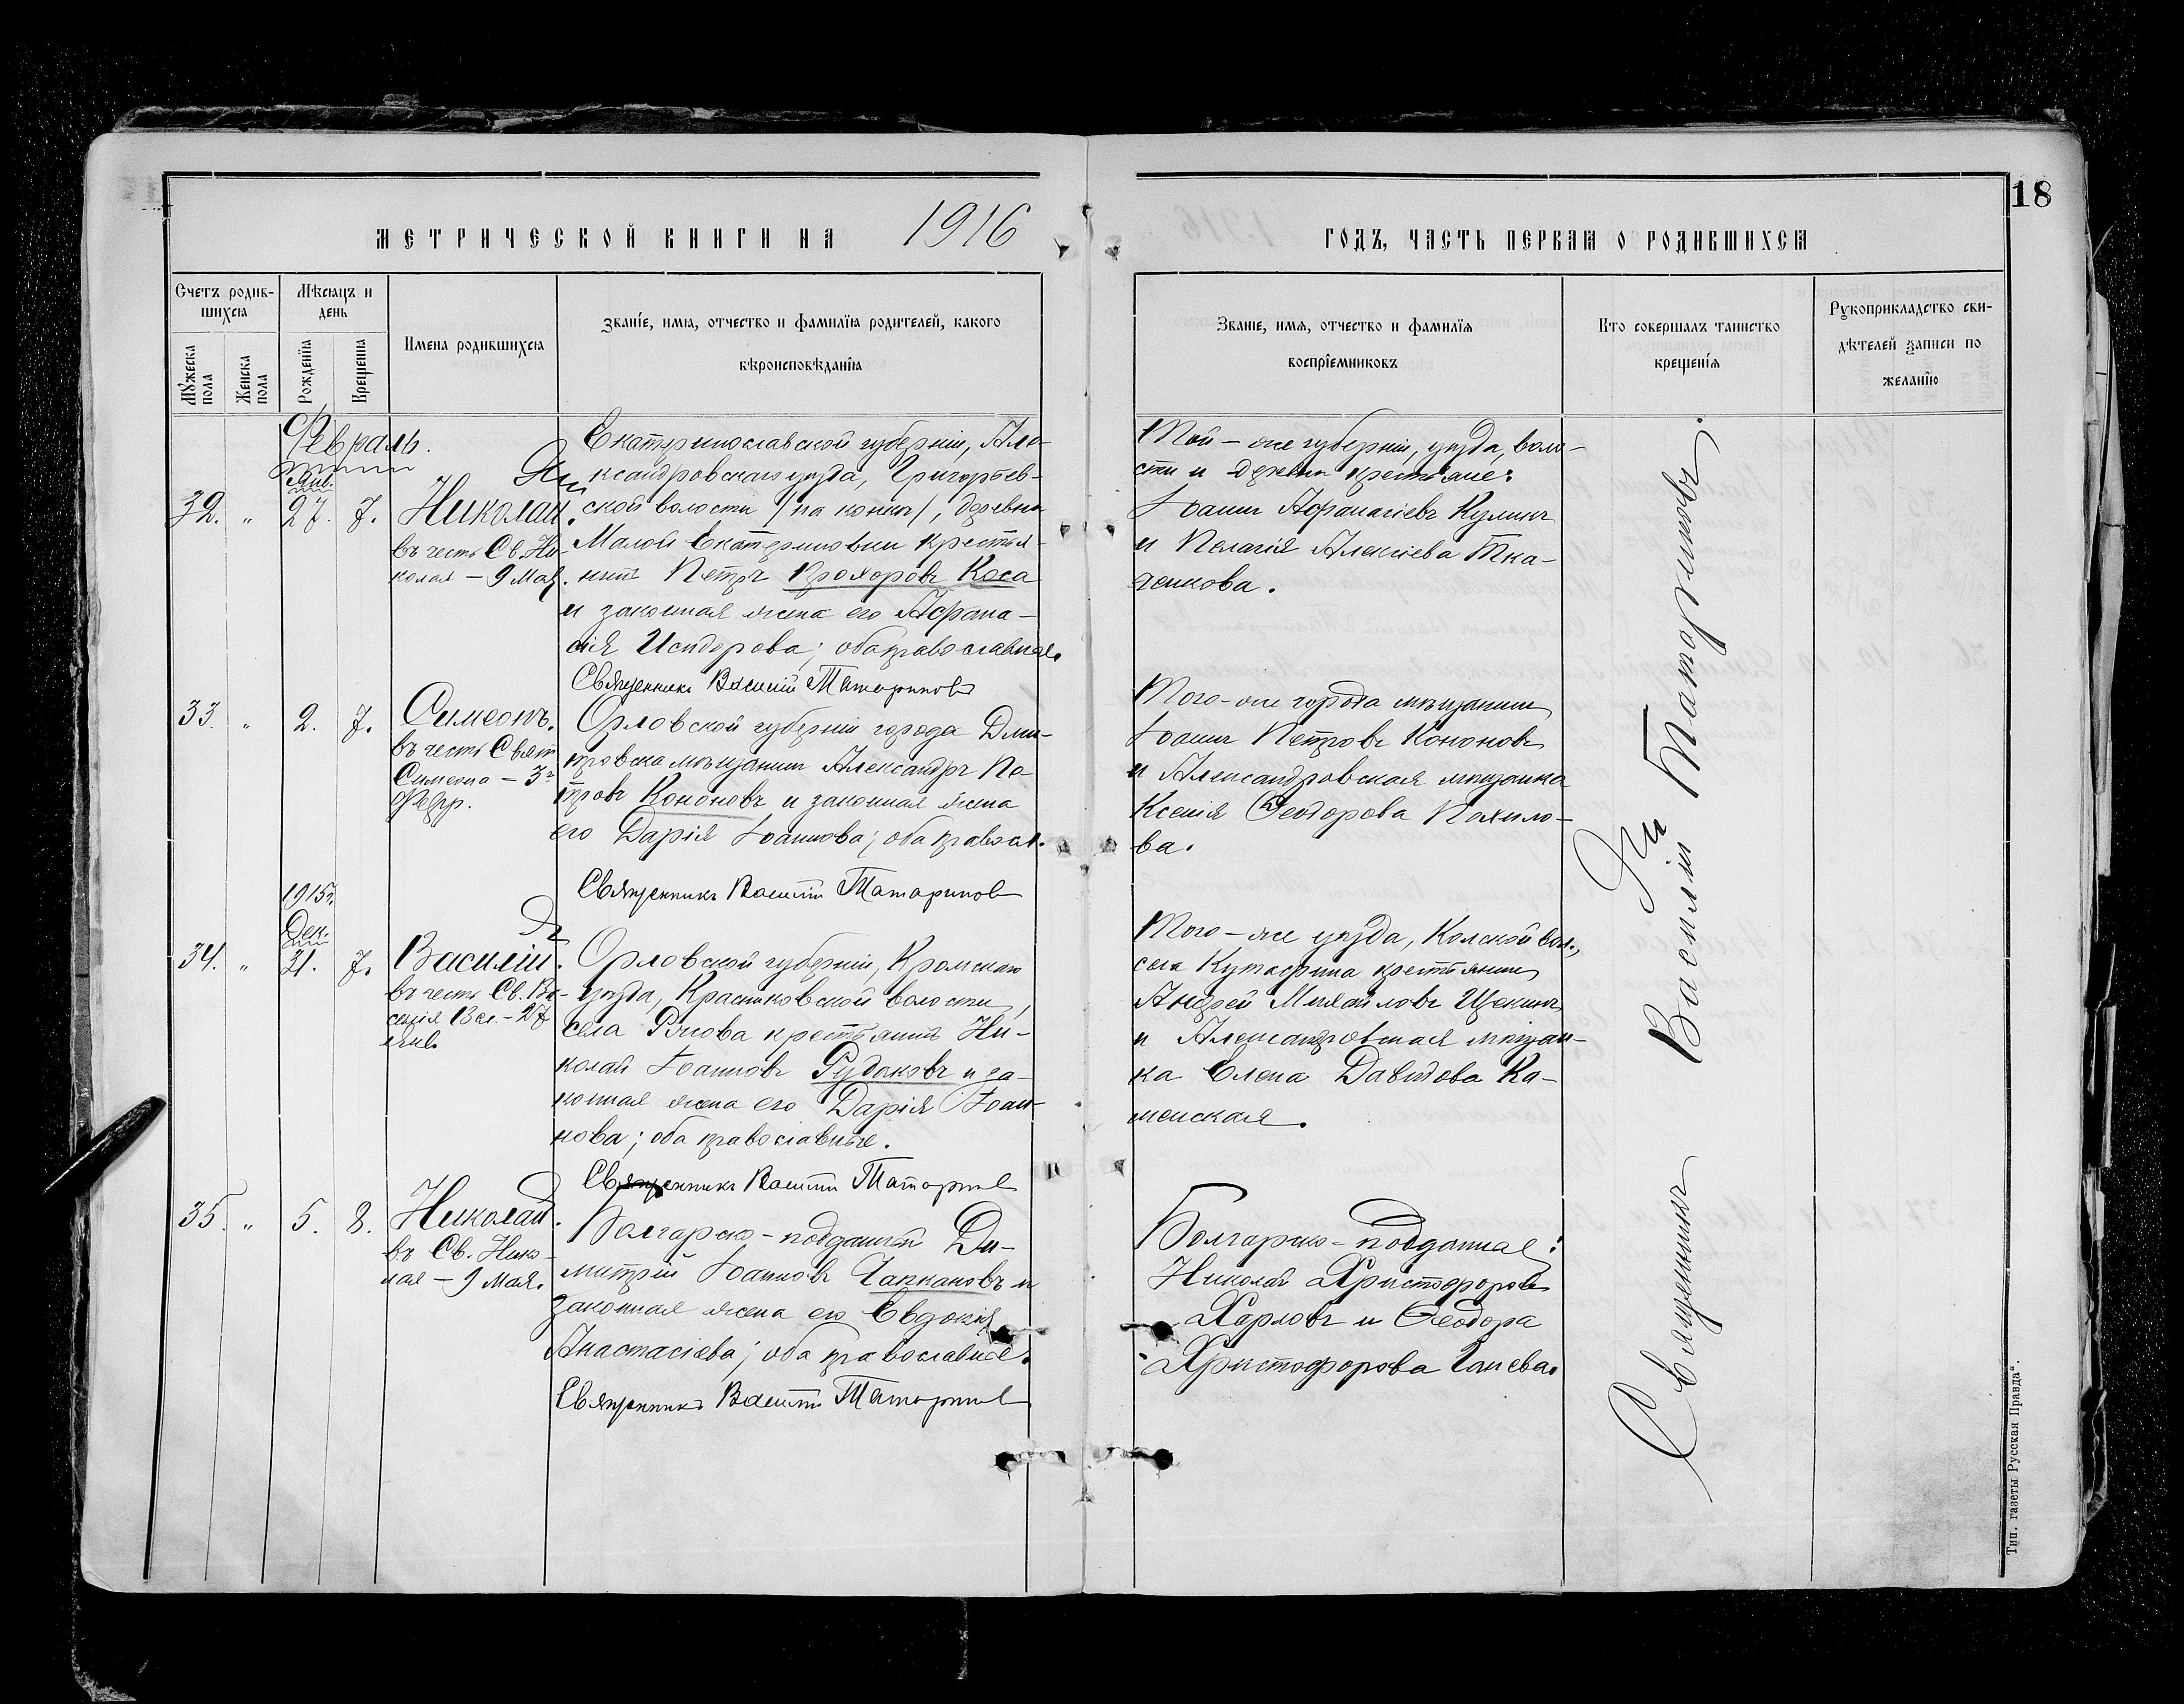 18
МЕТРИЧЕСКОЙ КНИГИ НА 1916
ГОДЪ, ЧАСТЬ ПЕРВАЯ О РОДИВШИХСЯ
Счетъ родив-
шихся
Мужеска пола
Женска пола
Мѣсяцъ и
день
Рожденїя
Крещенїя
Имена родившихся
Званїе, имя, отчество и фамилїя родителей, какого
вѣроисповѣданїя
Званїе, имя, отчество и фамилїя
воспрїемниковъ
Кто совершалъ таинство
крещенїя
Рукоприкладство сви-
дѣтелей записи по
желанїю
Февраль.
Янв.
32. " 27. 7. Николай.
въ честь Св. Ни-
колая – 9 Мая.
Екатеринославской губерніи, Але-
ксандровскаго уѣзда, Григорьев-
ской волости (на конкѣ), деревни
Малой Екатериновки крестья-
нинъ Петръ Прохоровъ Коса
и законная жена его Афана-
сія Исидорова; оба православные.
Священникъ Василій Татариновъ
Той-же губерніи, уѣзда, воло-
сти и деревни крестьяне:
Іоаннъ Афанасіевъ Кулинъ
и Пелагія Алексіева Тка-
ченкова.
33. " 2. 7. Симеонъ.
въ честь Свят.
Симеона – 3го
Февр.
Орловской губерніи города Дми-
тровска мѣщанинъ Александръ Пе-
тровъ Кононовъ и законная жена
его Дарія Іоаннова; оба правосл.
Священникъ Василій Татариновъ
Того-же города мѣщанинъ
Іоаннъ Петровъ Кононовъ
и Александровская мѣщанка
Ксенія Ѳеодорова Похило-
ва.
1915г.
Дек.
34. " 31. 7. Василій.
въ честь Св. Ва-
силія Вел. – 1 Янв.
Орловской губерніи, Кромскаго
уѣзда, Красниковской волости,
села Рыжова крестьянинъ Ни-
колай Іоанновъ Рудаковъ и за-
конная жена его Дарія Іоан-
нова; оба православные.
Священникъ Василій Татариновъ
Того-же уѣзда, Колской вол.,
села Кутафина крестьянинъ
Андрей Михайловъ Щекинъ
и Александровская мѣщан-
ка Елена Давидова Ка-
менская.
35. " 5. 8. Николай.
въ Св. Нико-
лая – 9 Мая.
Болгарско-подданный Ди-
митрій Іоанновъ Чапкановъ и
законная жена его Евдокія
Анастасіева; оба православные.
Священникъ Василій Татариновъ
Болгарско-подданные:
Николай Христофоровъ
Харловъ и Ѳеодора
Христофорова Ганева.
Священникъ Василій Татариновъ.
Тип. газеты Русская Правда“.